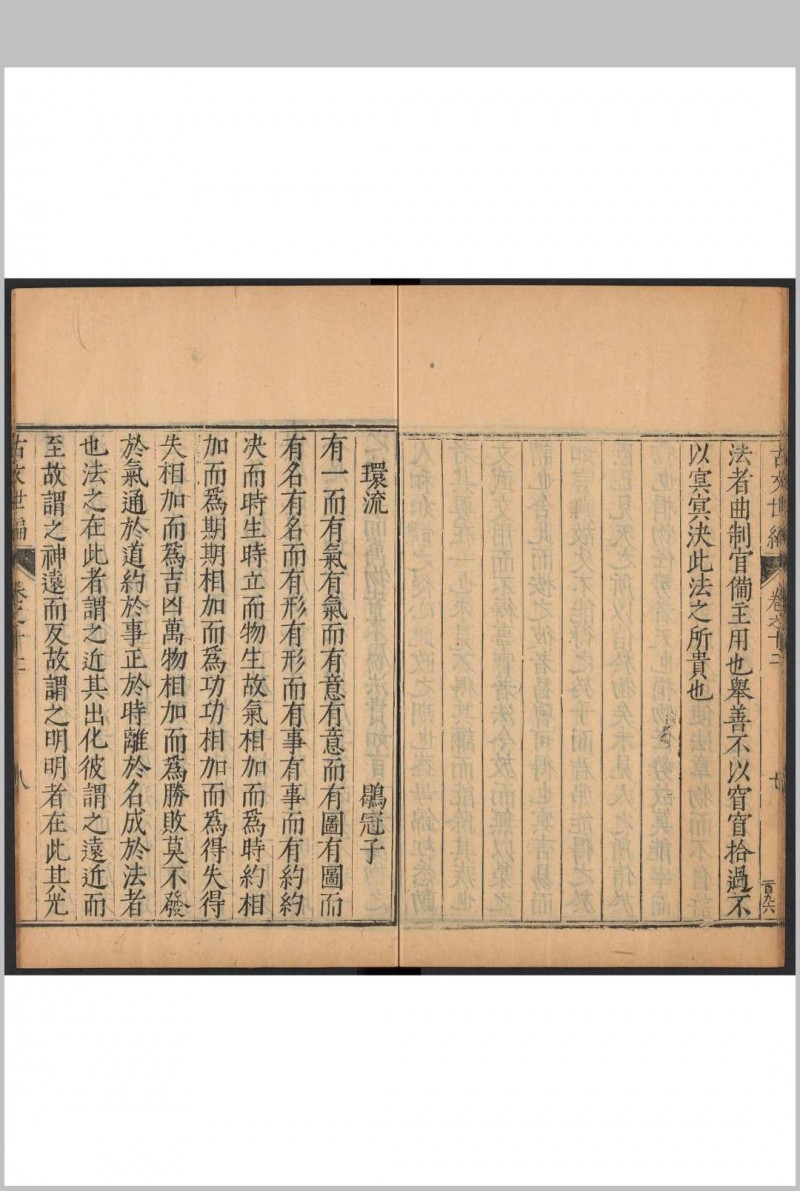 古文世編 卷之十二 廿 一百九六
法者曲制官備主用也舉善不以窅窅拾過不
以㝠㝠決此法之所貴也
環流 鶡冠子
有一而有氣有氣而有意有意而有圖有圖而
有名有名而有形有形而有事有事而有約約
决而時生時立而物生故氣相加而爲時約相
加而爲期期相加而爲功功相加而爲得失得
失相加而爲吉凶萬物相加而爲勝敗莫不發
於氣通於道約於事正於時離於名成於法者
也法之在此者謂之近其出化彼謂之遠近而
至故謂之神遠而反故謂之明明者在此其光
古文世編 卷之十二 八